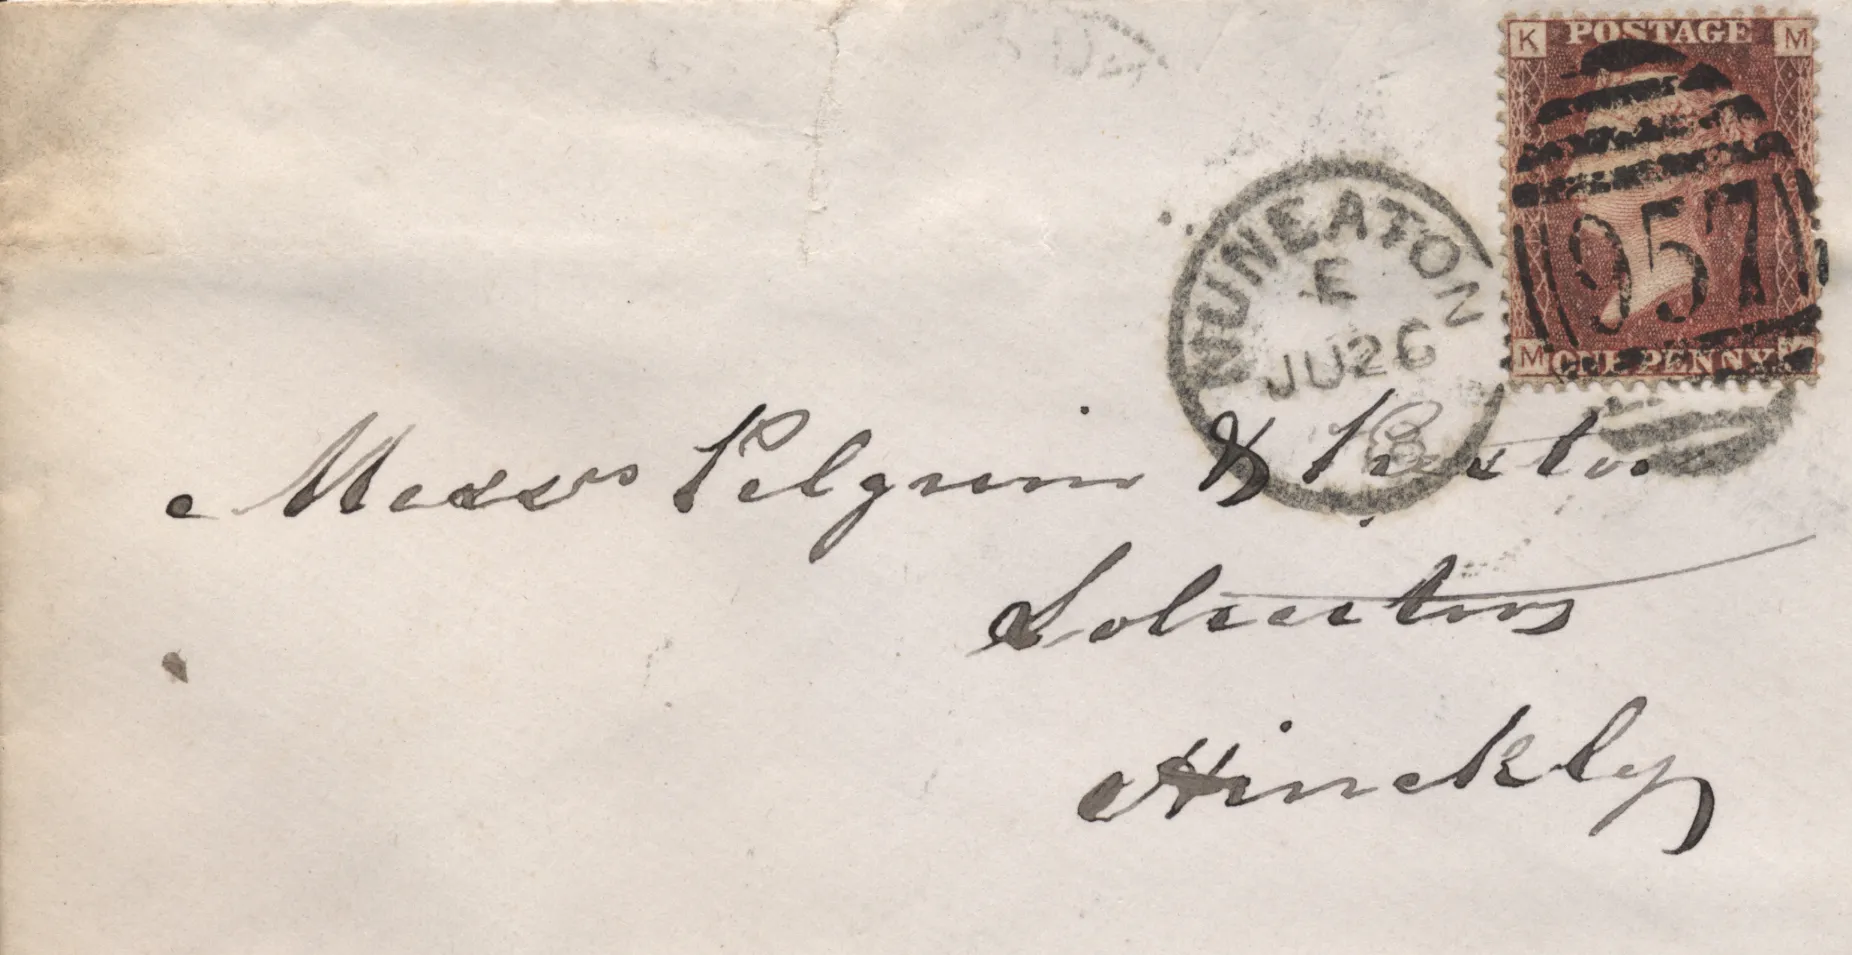 K POSTAGE M
957
M ONE PENNY K
NUNEATON
E
JU26
Messrs Pilgrim & Preston
Solicitors
Hinckley